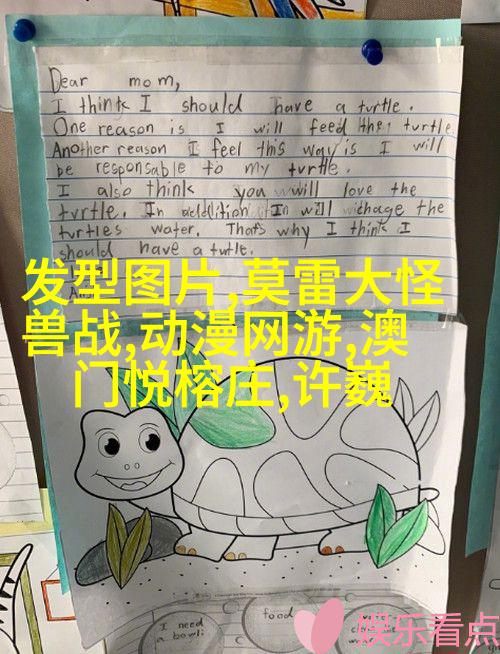 Dear mom,
I think I should have a turtle.
One reason is I will feed the turtle.
Another reason I feel this way is I will
be responsable to my turtle.
I also think you will love the
turtle. In addition I will chage the
turtles water. That's why I think I
should have a turtle.
发型图片,莫雷大怪
兽战,动漫网游,澳
门悦榕庄,许巍
I need
a bowl
food
娱乐看点